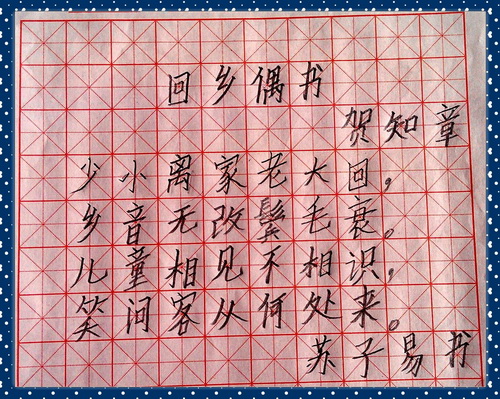 回乡偶书
贺知章
少小离家老大回，
乡音无改鬓毛衰。
儿童相见不相识，
笑问客从何处来。
苏子易书